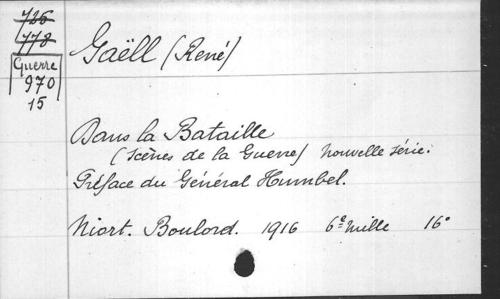 726
778
Guerre
970
15
Gaëll (René)
Dans la Bataille
(Scènes de la Guerre) nouvelle série.
Préface du Général Humbel.
Niort. Boulord. 1916 6e mille 16°